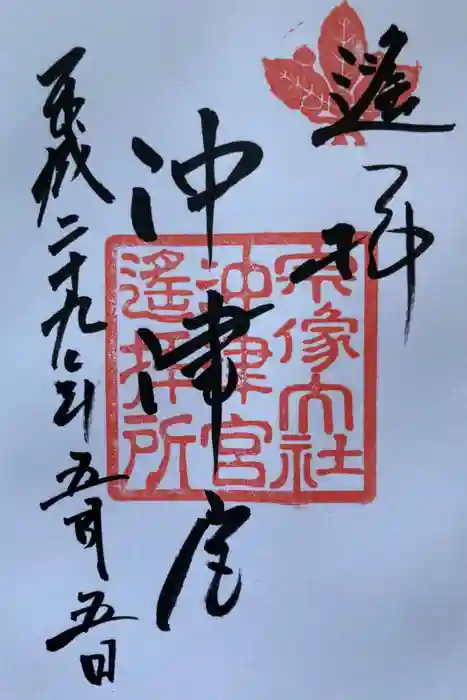 遥拝
沖津宮
平成二十九年五月五日
宗像大社
沖津宮
遙拝所